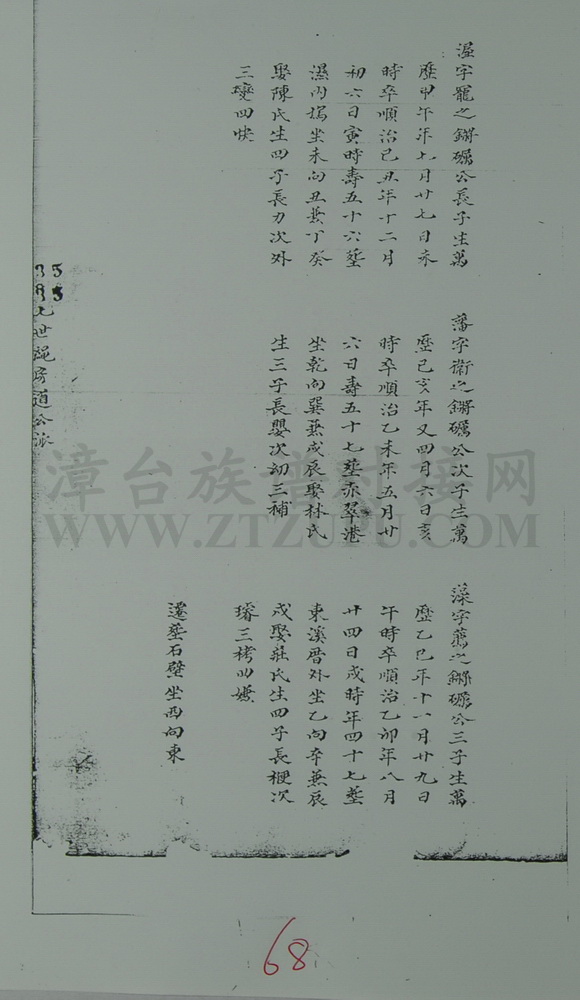 字罷之鏘礪公長子生萬
歷甲午年七月廿七日亥
時卒順治己丑年十二月
初六日寅時壽五十六塟
濕內塢坐未向丑兼丁癸
娶陳氏生四子長力次外
三燮四快
藩字衛之鏘礪公次子生萬
歷己亥年又四月六日亥
時卒順治乙未年五月廿
六日壽五十七塟赤翠港
坐乾向巽兼戌辰娶林氏
生三子長嬰次幼三補
藻字蔫之鏘礪公三子生萬
歷乙巳年十一月廿九日
午時卒順治乙卯年八月
廿四日戌時年四十七塟
東溪厝外坐乙向辛兼辰
戌娶莊氏生四子長梗次
璿三栲四
遷塟石壁坐西向東
七世房道公派
漳台族谱对接网
WWW.ZTZUPU.COM
68